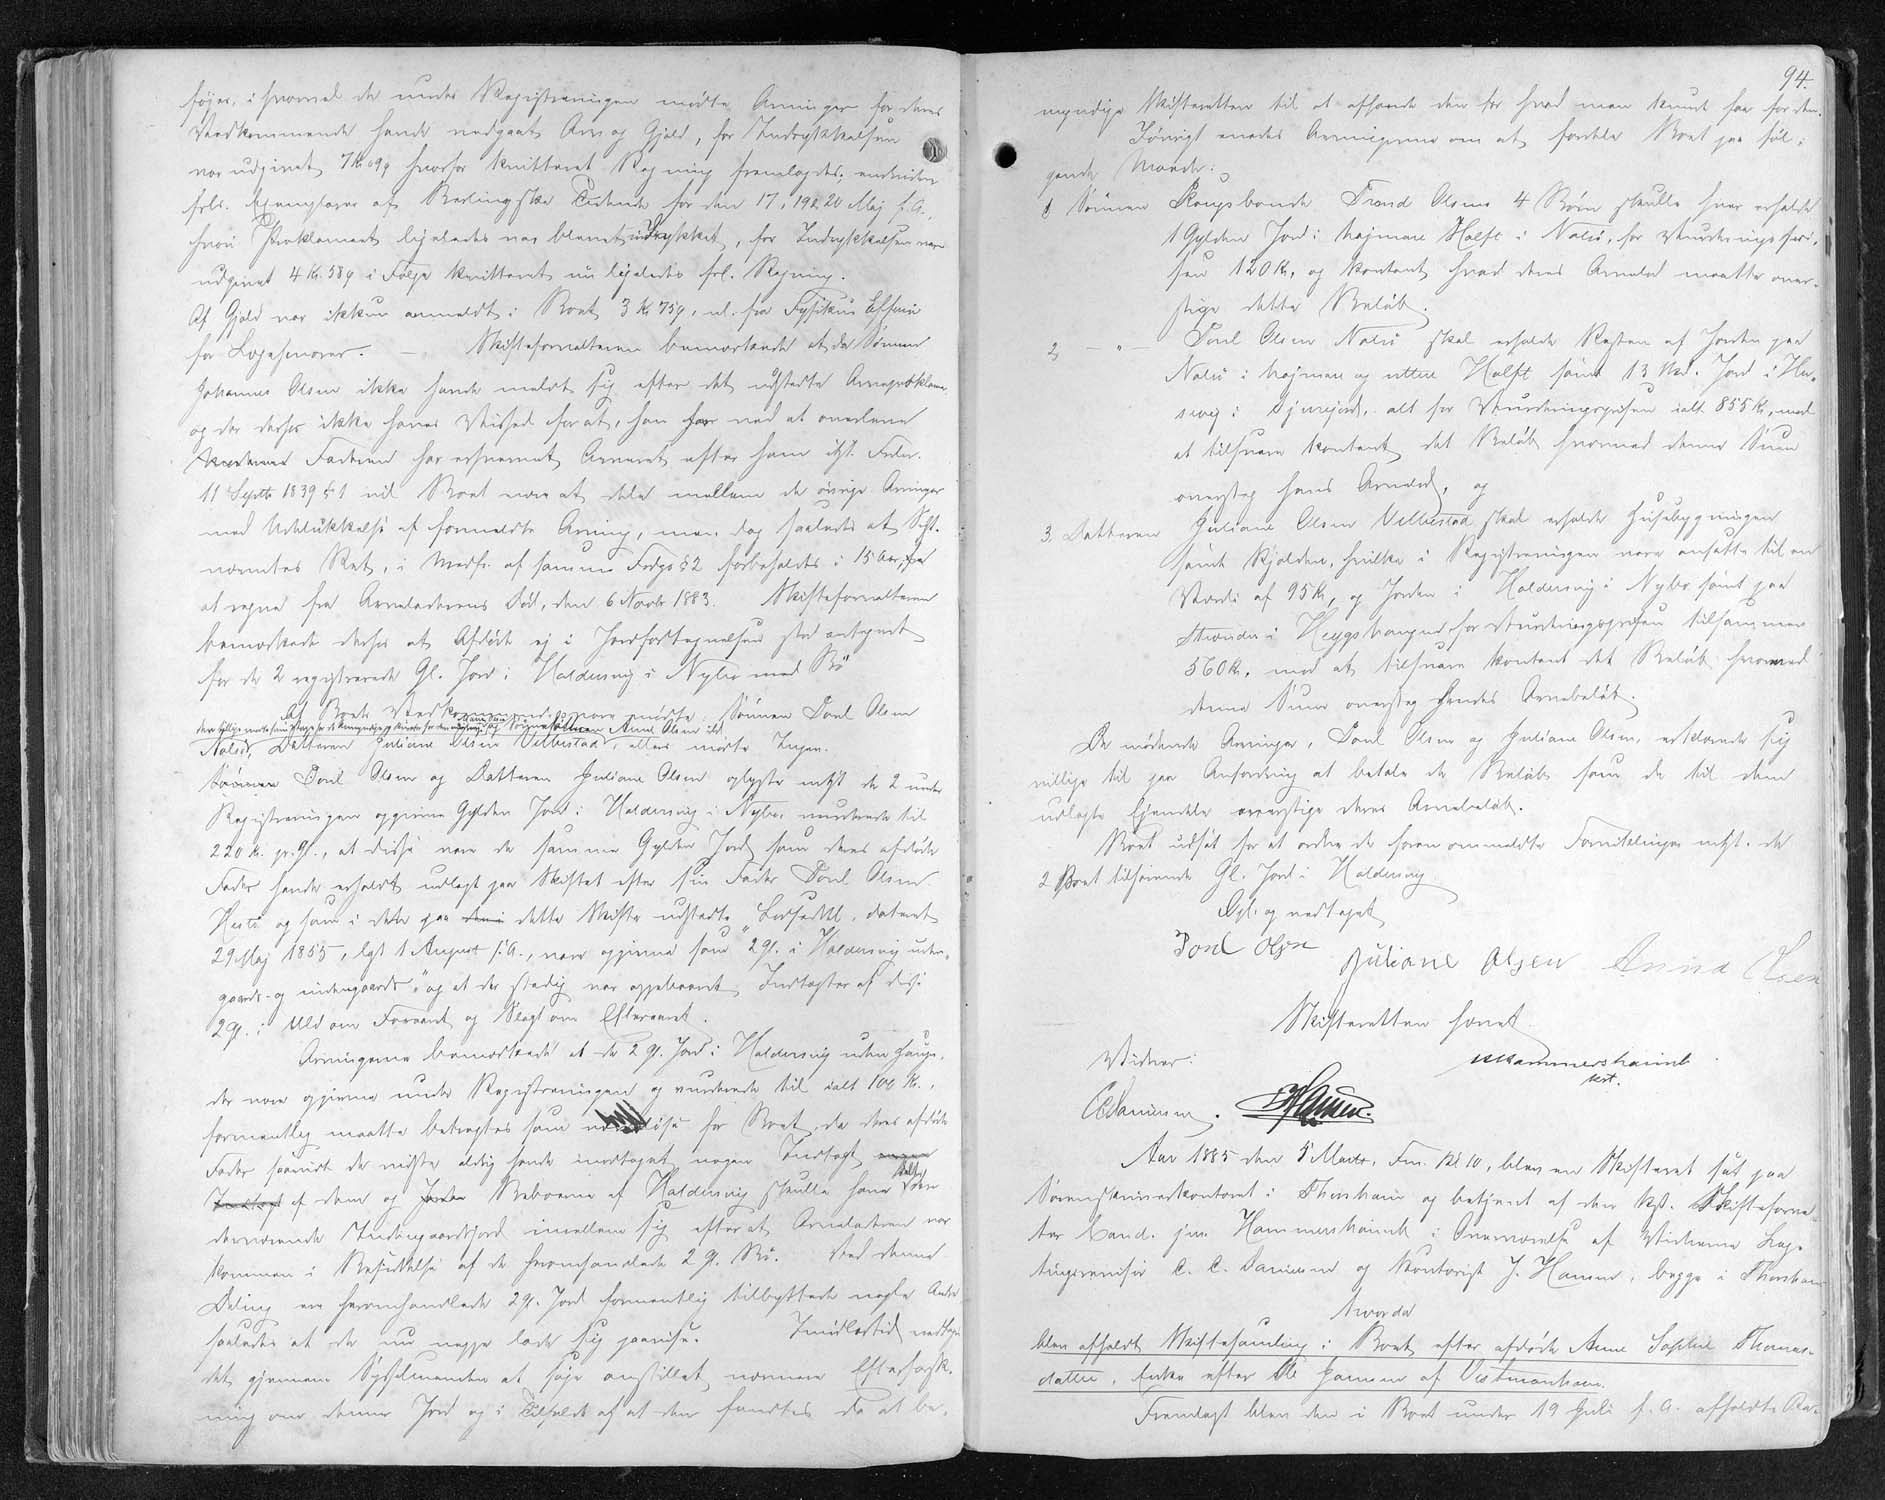 føjes, i hvornad de under Registreringen mødte Arvinger for deres
Vedkommende havde vedgaaet Arv og Gjæld, for Indrykkelsen
var udgivet 7 Kr. 09 Ø hvorfor kvitteret Regning fremlagdes; endvidere
frls. Exemplarer af Berlingske Tidende for den 17, 19 & 20 Maj f. A.,
hvori Proklamaet ligeledes var blevet indrykket, for Indrykkelsen var
udgivet 4 Kr. 58 Ø i Følge kvitteret nu ligeledes frl. Regning.
Af Gjæld var ikkun anmeldt i Boet 3 Kr 75 Ø, nl. fra Fysikus
for Lægehonorar. — Skifteforvalteren bemærkede at da Sønnen
Johannes Olsen ikke havde meldt sig efter det udstedte Arveproklama,
og der derfor ikke haves Vished for at, han har ved at overleve
Faderen har erhvervet Arveret efter ham ifgt. Frdn.
11 Septb 1839 § 1 vil Boet være at dele mellem de øvrige Arvinger
med Udelukkelse af formeldte Arving, men dog saaledes at Sidst-
nævntes Ret, i Medfr. af samme Frdgs § 2 forbeholdes i 15 Aar,
at regne fra Arveladerens Død, den 6 Novbr 1883. Skifteforvalteren
bemærkede derhos at Afdøde ej i Jordfortegnelsen stod antegnet
for de 2 registrerede Gl. Jord i Haldersvig i Nybø med Bø
Af Boets Vedkommende vare mødte Sønnen Poul Olsen
Nolsø, Datteren Juliane Olsen Velbestad, Anne Olsen ellers mødte Ingen.
Sønnen Poul Olsen og Datteren Juliane Olsen oplyste mht de 2 under
Registreringen opgivne Gylden Jord i Haldersvig i Nybø, vurderede til
220 Kr. pr. Gl., at disse vare de samme Gylden Jord som deres afdøde
Fader havde erholdt udlagt paa Skiftet efter sin Fader Poul Olsen
og som i det paa dette Skifte udstedte Lodseddel, dateret
29 Maj 1855, lgt 1 August s. A., vare opgivne som "2 gl. i Haldersvig uden-
gaards- og indengaards" og at der stadig var oppebaaret Indtægter af disse
2 gl. i Uld om Foraaret og Slagt om Efteraaret.
Arvingerne bemærkede at de 2 gl. Jord i Haldersvig uden Hauge,
der vare opgivne under Registreringen og vurderede til ialt 100 Kr.,
formentlig maatte betragtes som for Boet, da deres afdøde
Fader saavidt de vidste aldrig havde modtaget nogen Indtægt
af dem og Beboerne af Haldersvig skulle have delt
derværende Indengaardsjord imellem sig efterat Arveladeren var
kommen i Besiddelse af de heromhandlede 2 gl. Bø. Ved denne
Deling ere heromhandlede 2 gl. Jord formentlig tilbyttede nogle Andre
saaledes at de nu neppe lade sig paavise. Imidlertid vedtoges
det gjennem Sysselmanden at søge anstillet nærmere Eftersøgk-
ning om denne Jord og i Tilfælde af at den fandtes da at be-
94.
myndige Skifteretten til at afhænde den for hvad man kunde faa for den.
Iøvrigt enedes Arvingerne om at fordele Boet paa føl-
gende Maade:
1 Sønnen Kongsbonde Trond Olsens 4 Børn skulle hver erholde
1 Gylden Jord i højmare Halft i Nolsø, for Vurderingspri-
sen 120 Kr, og kontant hvad deres Arvelod maatte over-
stige dette Beløb.
2 — " — Poul Olsen Nolsø skal erholde Resten af Jorden paa
Nolsø i højmare og uttere Halft samt 13 Skd. Jord i Hu-
sevig i Djurejord, alt for Vurderingsprisen ialt 855 Kr, mod
at tilsvare kontant det Beløb hvormed denne Sum
oversteg hans Arvelod, og
3. Datteren Juliane Olsen Velbestad skal erholde Husebygningen
samt Kjælderen, hvilke i Registreringen vare ansatte til en
Værdi af 95 Kr, og Jorden i Haldersvig i Nybø samt paa
Strænder i for Vurderingsprisen tilsammen
560 Kr, mod at tilsvare kontant det Beløb hvormed
denne Sum oversteg hendes Arvebeløb.
De mødende Arvinger, Poul Olsen og Juliane Olsen, erklærede sig
villige til paa Anfordring at betale de Beløb som de til dem
udlagte Ejendele overstige deres Arvebeløb.
Boet udsat for at ordne de foran ommeldte Forvitlinger mht. de
2 Boet tilhørende Gl. Jord i Haldersvig
Opl. og vedtaget
Poul Olsen Juliane Olsen Anna Olsen
Skifteretten hævet
Vidner: Hammershaimb
kst.
CDanielsen. JHansen.
Aar 1885 den 5 Marts, Fm. Kl 10, blev en Skifteret sat paa
Sorenskriverkontoret i Thorshavn og betjent af den kst. Skifteforval-
ter Cand. jur. Hammershaimb i Overværelse af Vidnerne Lag-
tingsrevisor C. C. Danielsen og Kontorist J. Hansen, begge i Thorshavn,
hvorda
blev afholdt Skiftesamling i Boet efter afdøde Anne Sophie Thomas-
datter, Enke efter Ole Hansen af Vestmanhavn.
Fremlagt blev den i Boet under 19 Juli f. A. afholdte Re-